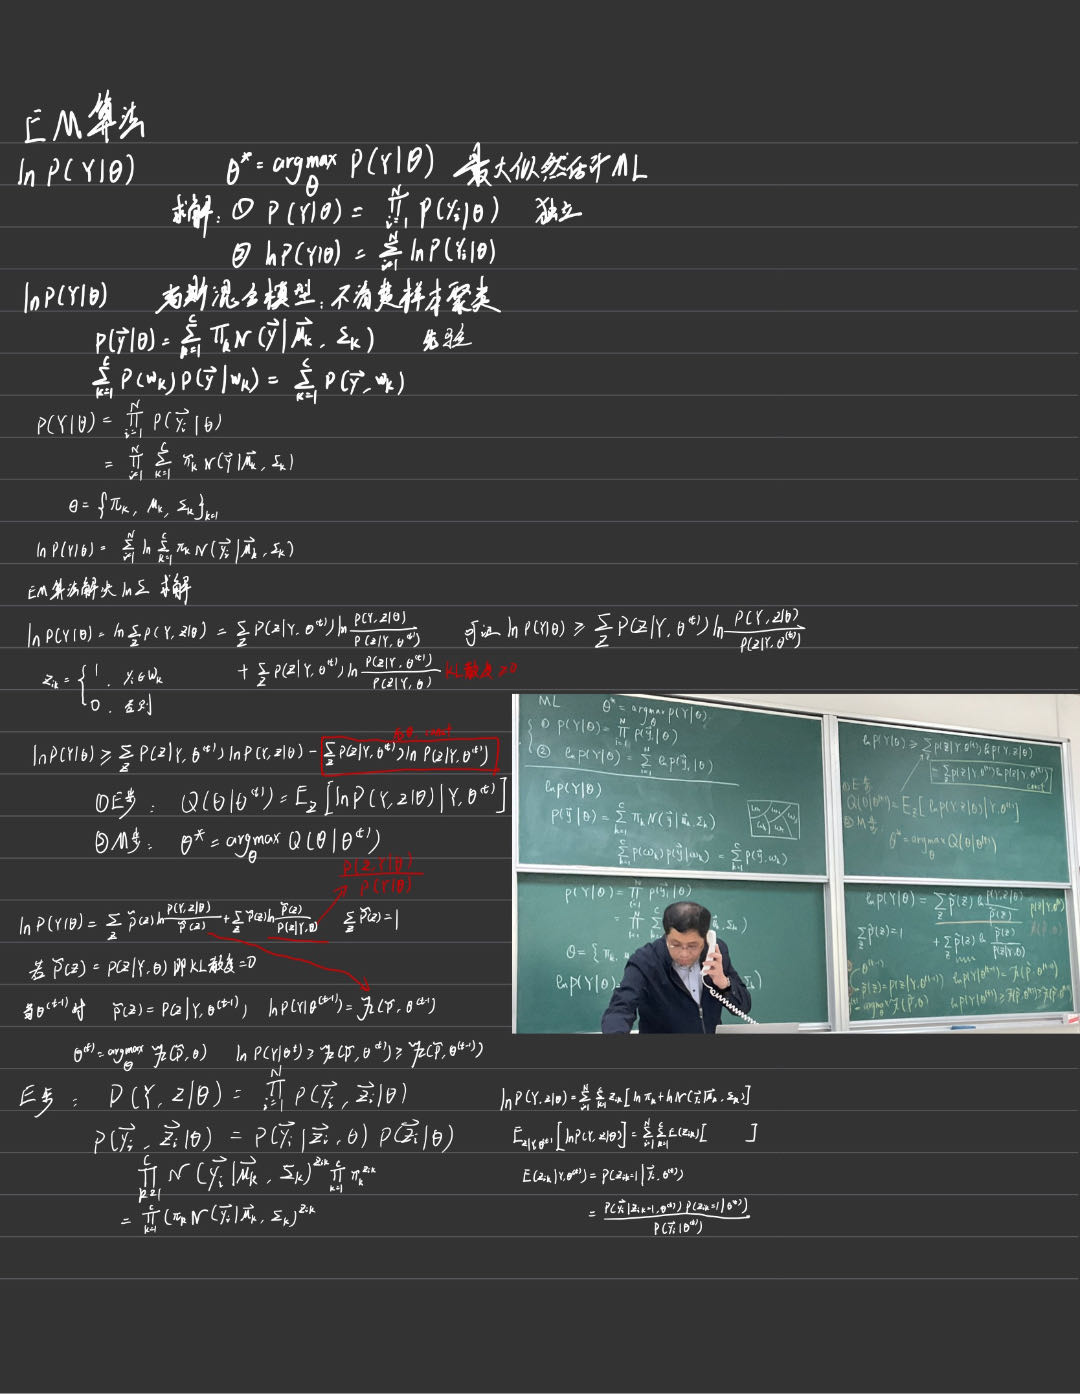 EM算法
ln P(Y|θ) θ* = argmax_θ P(Y|θ) 最大似然估计 ML
求解: ① P(Y|θ) = ∏_{i=1}^{N} P(Y_i|θ) 独立
② ln P(Y|θ) = Σ_{i=1}^{N} ln P(Y_i|θ)
ln P(Y|θ) 高斯混合模型: 不清楚样本聚类
P(y⃗|θ) = Σ_{k=1}^{C} π_k N(y⃗|μ⃗_k, Σ_k) 先验
Σ_{k=1}^{C} P(ω_k) P(y⃗|ω_k) = Σ_{k=1}^{C} P(y⃗, ω_k)
P(Y|θ) = ∏_{i=1}^{N} P(y⃗_i|θ)
= ∏_{i=1}^{N} Σ_{k=1}^{C} π_k N(y⃗|μ⃗_k, Σ_k)
θ = {π_k, μ_k, Σ_k}_{k=1}
ln P(Y|θ) = Σ_{i=1}^{N} ln Σ_{k=1}^{C} π_k N(y⃗_i|μ⃗_k, Σ_k)
EM算法解决 lnΣ 求解
ln P(Y|θ) = ln Σ_Z P(Y,Z|θ) = Σ_Z P(Z|Y,θ^(t)) ln P(Y,Z|θ)/P(Z|Y,θ^(t)) 可证 ln P(Y|θ) ≥ Σ_Z P(Z|Y,θ^(t)) ln P(Y,Z|θ)/P(Z|Y,θ^(t))
+ Σ_Z P(Z|Y,θ^(t)) ln P(Z|Y,θ^(t))/P(Z|Y,θ) KL散度≥0
z_ik = { 1, y_i∈ω_k
0, 否则
ln P(Y|θ) ≥ Σ_Z P(Z|Y,θ^(t)) ln P(Y,Z|θ) - Σ_Z P(Z|Y,θ^(t)) ln P(Z|Y,θ^(t))
const
①E步: Q(θ|θ^(t)) = E_Z[ln P(Y,Z|θ)|Y,θ^(t)]
②M步: θ* = argmax_θ Q(θ|θ^(t))
P(Z,Y|θ)/P(Y|θ)
ln P(Y|θ) = Σ_Z P̃(z) ln P(Y,Z|θ)/P̃(z) + Σ_Z P̃(z) ln P̃(z)/P(Z|Y,θ) Σ_Z P̃(z) = 1
若 P̃(z) = P(Z|Y,θ) 即KL散度=0
当θ^(t-1)时 P̃(z) = P(Z|Y,θ^(t-1)), ln P(Y|θ^(t-1)) = F(P̃,θ^(t-1))
θ^(t) = argmax_θ F(P̃,θ) ln P(Y|θ^t) ≥ F(P̃,θ^(t)) ≥ F(P̃,θ^(t-1))
E步: P(Y,Z|θ) = ∏_{i=1}^{N} P(y⃗_i, z⃗_i|θ)
P(y⃗_i, z⃗_i|θ) = P(y⃗_i|z⃗_i, θ) P(z⃗_i|θ)
∏_{k=1}^{C} N(y⃗_i|μ⃗_k, Σ_k)^{z_ik} ∏_{k=1}^{C} π_k^{z_ik}
= ∏_{k=1}^{C} (π_k N(y⃗_i|μ⃗_k, Σ_k)^{z_ik}
ln P(Y,Z|θ) = Σ_{i=1}^{N} Σ_{k=1}^{C} z_ik [ln π_k + ln N(y⃗_i|μ⃗_k, Σ_k)]
E_{Z|Y,θ^(t)} [ln P(Y,Z|θ)] = Σ_{i=1}^{N} Σ_{k=1}^{C} E(z_ik) [ ]
E(z_ik|Y,θ^(t)) = P(z_ik=1|y⃗_i, θ^(t))
= P(y⃗_i|z_ik=1, θ^(t)) P(z_ik=1|θ^(t)) / P(y⃗_i|θ^(t))
ML θ* = argmax_θ P(Y|θ)
① P(Y|θ) = ∏_{i=1}^{N} P(y⃗_i|θ)
② ln P(Y|θ) = Σ_{i=1}^{N} ln P(y⃗_i|θ)
ln P(Y|θ)
P(y⃗|θ) = Σ_{k=1}^{C} π_k N(y⃗|μ⃗_k, Σ_k)
Σ_{k=1}^{C} P(ω_k) P(y⃗|ω_k) = Σ_{k=1}^{C} P(y⃗, ω_k)
P(Y|θ) = ∏_{i=1}^{N} P(y⃗_i|θ)
θ = {π_k
ln P(Y|θ)
ln P(Y|θ) ≥ Σ_Z P(Z|Y,θ^(t)) ln P(Y,Z|θ)
- Σ_Z P(Z|Y,θ^(t)) ln P(Z|Y,θ^(t))
const
①E步
Q(θ|θ^(t)) = E_Z[ln P(Y,Z|θ)|Y,θ^(t)]
②M步
θ* = argmax_θ Q(θ|θ^(t))
ln P(Y|θ) = Σ_Z P̃(z) ln P(Y,Z|θ)/P̃(z)
Σ_Z P̃(z) = 1 + Σ_Z P̃(z) ln P̃(z)/P(Z|Y,θ)